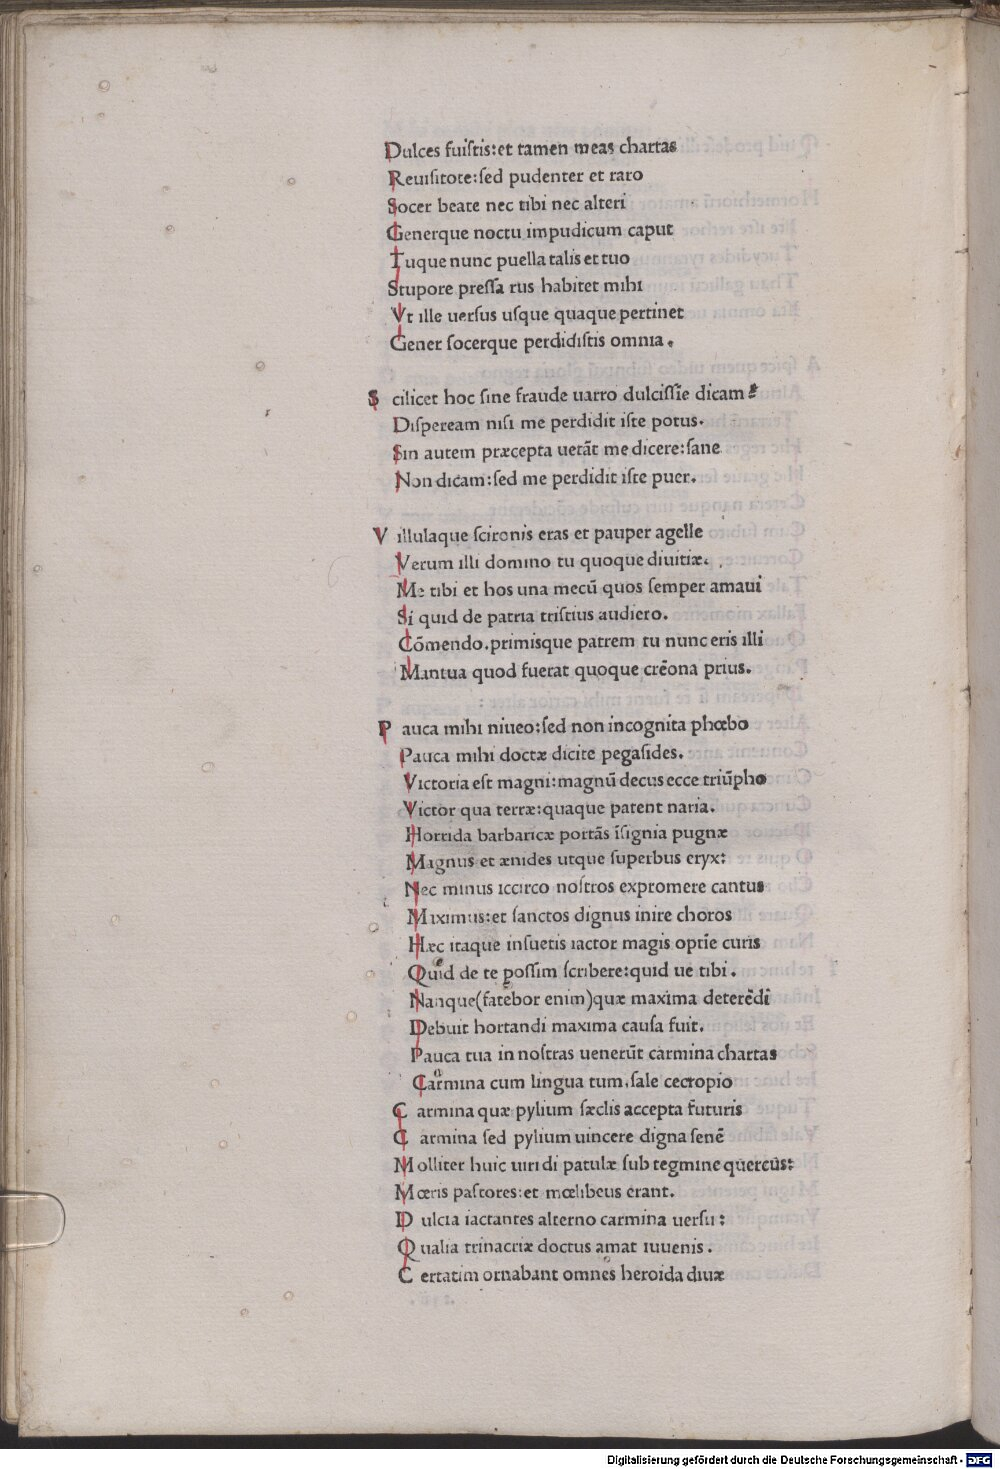 Dulces fuiſtis:et tamen meas chartas
Reuiſitote:ſed pudenter et raro
Socer beate nec tibi nec alteri
Generque noctu impudicum caput
Tuque nunc puella talis et tuo
Stupore preſſa rus habitet mihi
Vt ille uerſus uſque quaque pertinet
Gener ſocerque perdidiſtis omnia.
S cilicet hoc ſine fraude uarro dulciſſīe dicam
Diſpeream niſi me perdidit iſte potus.
Sin autem præcepta uetāt me dicere:ſane
Non dicam:ſed me perdidit iſte puer.
V illulaque ſcironis eras et pauper agelle
Verum illi domino tu quoque diuitiæ.
Me tibi et hos una mecū quos ſemper amaui
Si quid de patria triſtius audiero.
Cōmendo.primisque patrem tu nunc eris illi
Mantua quod fuerat quoque crēona prius.
P auca mihi niueo:ſed non incognita phœbo
Pauca mihi doctæ dicite pegaſides.
Victoria eſt magni:magnū decus ecce triūpho
Victor qua terræ:quaque patent naria.
Horrida barbaricæ portās īſignia pugnæ
Magnus et ænides utque ſuperbus eryx:
Nec minus iccirco noſtros expromere cantus
Miximus:et ſanctos dignus inire choros
Hæc itaque inſuetis iactor magis optīe curis
Quid de te poſſim ſcribere:quid ue tibi.
Nanque(fatebor enim)quæ maxima deterēdi
Debuit hortandi maxima cauſa fuit.
Pauca tua in noſtras uenerūt carmina chartas
Carmina cum lingua tum.ſale cecropio
C armina quæ pylium ſæclis accepta futuris
C armina ſed pylium uincere digna ſenē
M olliter huic uiridi patulæ ſub tegmine quercus:
M œris paſtores:et mœlibeus erant.
D ulcia iactantes alterno carmina uerſu:
Q ualia trinacriæ doctus amat iuuenis.
C ertatim ornabant omnes heroida diuæ
Digitalisierung gefördert durch die Deutsche Forschungsgemeinschaft - DFG